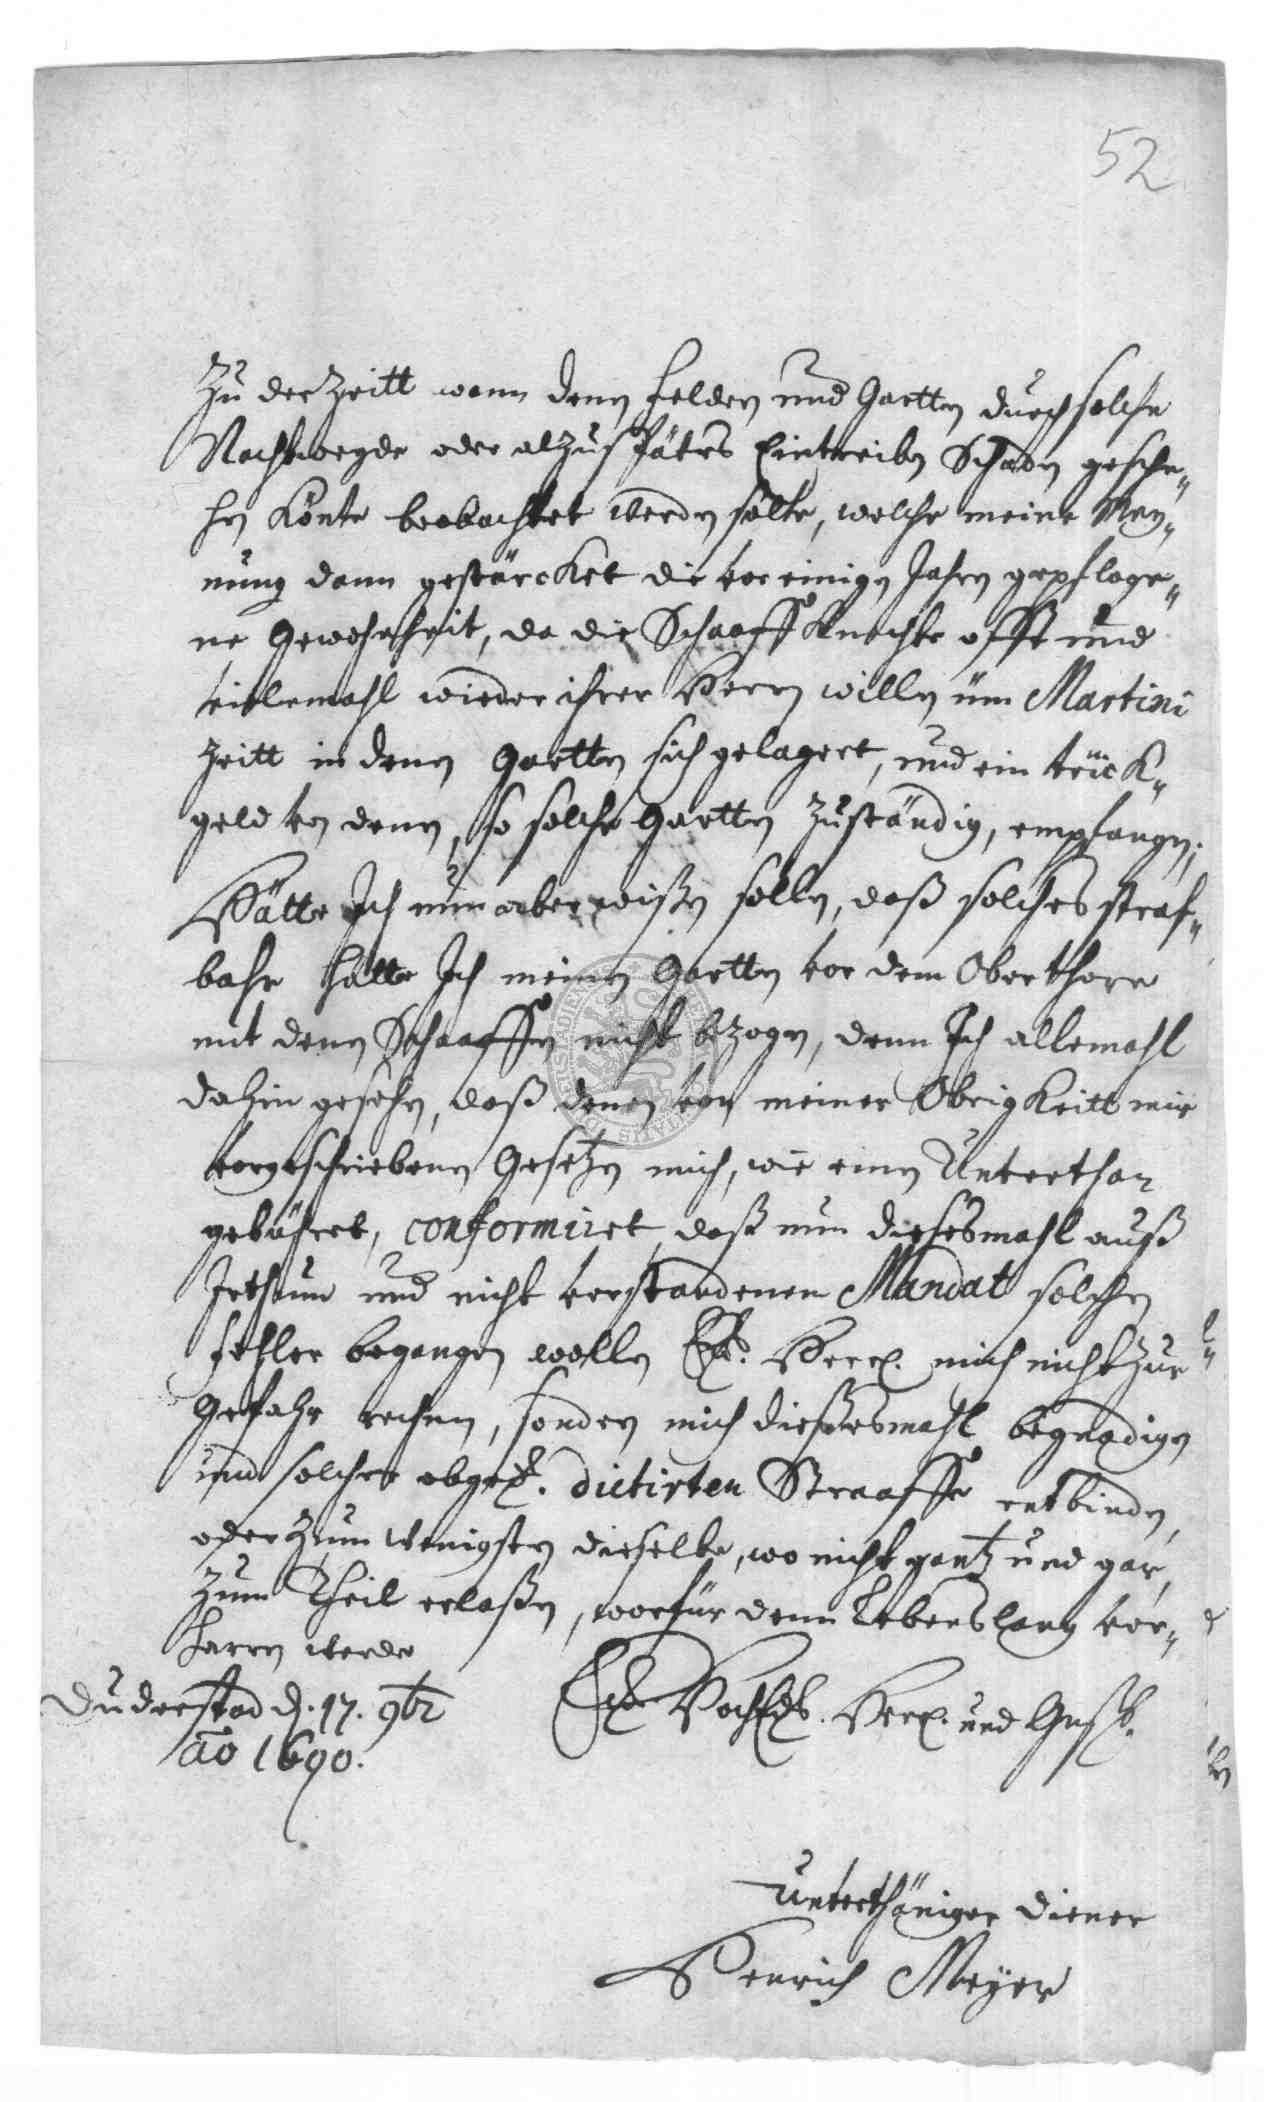 52
Zu der Zeitt wann denen Felden und Gartten durch solche
Nachtweyde oder alzuspätes Eintreiben Schaden gesche„
hen könte beobachtet werden solte, welche meine Mey„
nung dann gestärcket die vor einigen Jahren gepfloge„
ne Gewohnheit, da die Schaaff Knechte offt und
vielemahl wieder ihrer Herrn willen üm Martini
Zeitt in denen Gartten sich gelagert, und ein trück„
geld von denen, so solche Gartten zuständig, empfangen;
Hätte Ich nun aber wißen sollen, daß solches straf„
bahr hätte Ich meinen Gartten vor dem Oberthore
mit denen Schaaffen nicht bezogen, denn Ich allemahl
dahin gesehen, daß denen von meiner Obrigkeitt mir
vorgeschriebenen Gesetzen mich, wie einen Unterthan
gebühret, conformiret, daß nun diesesmahl auß
Irthum und nicht verstandenen Mandat solchen
fehler begangen wollen Ew. Herrl. mich nicht zur
Gefahr rechnen, sondern mich dießesmahl begnadigen
und solcher obged. dictirten Straaffe entbinden,
oder zum wenigsten dieselbe, wo nicht gantz und gar,
zum Theil erlaßen, worfür denn Lebenslang ver„
harren werde
Duderstad d. 17. 9br
ao 1690.
Ew. HochEdl. Herrl. und Gnst.
unterthäniger Diener
Henrich Meyer